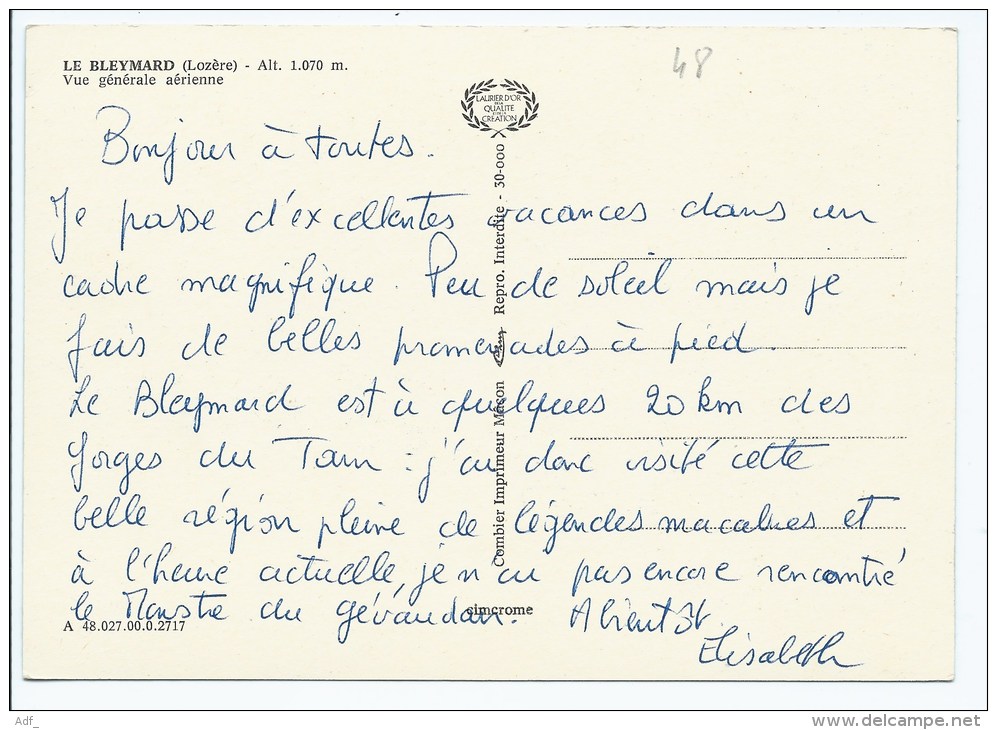 LE BLEYMARD (Lozère) - Alt. 1.070 m.
Vue générale aérienne
48
LAURIER D'OR
DE LA
QUALITE
CREATION
Bonjour à toutes.
Je passe d'excellentes vacances dans un
cadre magnifique. Peu de soleil mais je
fais de belles promenades à pied.
Le Bleymard est à quelques 20 km des
Gorges du Tarn : j'ai donc visité cette
belle région pleine de légendes macabres et
à l'heure actuelle, je n'ai pas encore rencontré
le Monstre du Gévaudan. A bientôt.
Elisabeth
Combier Imprimeur Mâcon Repro. Interdite - 30-000
cimcrome
A 48.027.00.0.2717
Adf_
www.delcampe.net